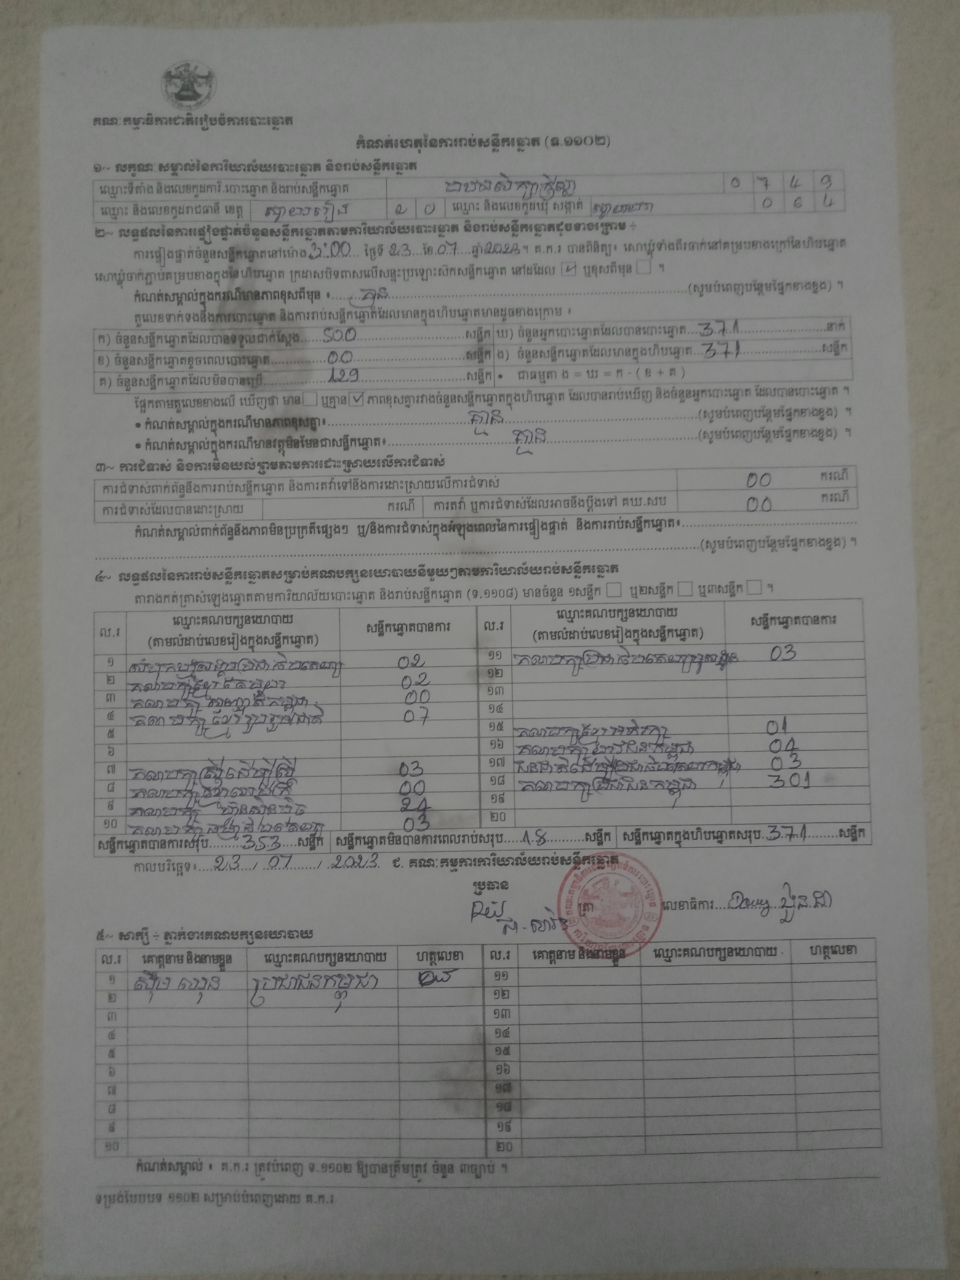 គណៈកម្មាធិការជាតិរៀបចំការបោះឆ្នោត
កំណត់ហេតុនៃការរាប់សន្លឹកឆ្នោត (ទ.១១០២)
១~ លក្ខណៈសម្គាល់នៃការិយាល័យបោះឆ្នោត និងរាប់សន្លឹកឆ្នោត
ឈ្មោះទីតាំង និងលេខកូដការិ.បោះឆ្នោត និងរាប់សន្លឹកឆ្នោត 0 7 4 9
ឈ្មោះ និងលេខកូដរាជធានី ខេត្ត ស្វាយរៀង 2 0 ឈ្មោះ និងលេខកូដឃុំ សង្កាត់ 0 6 4
២~ លទ្ធផលនៃការផ្ទៀងផ្ទាត់ចំនួនសន្លឹកឆ្នោតតាមការិយាល័យបោះឆ្នោត និងរាប់សន្លឹកឆ្នោតដូចខាងក្រោម ៖
ការផ្ទៀងផ្ទាត់ចំនួនសន្លឹកឆ្នោតនៅម៉ោង 3:00 ថ្ងៃទី 23 ខែ 07 ឆ្នាំ 2023។ គ.ក.រ បានពិនិត្យ៖ សោឃ្លុំទាំងពីរចាក់នៅគម្របខាងក្រៅនៃហិបឆ្នោត
សោឃ្លុំចាក់ភ្ជាប់គម្របខាងក្នុងនៃហិបឆ្នោត ក្រដាសបិទពាសលើសន្ទះប្រឡោះស៊កសន្លឹកឆ្នោត នៅដដែល ☑ ឬខុសពីមុន ☐ ។
កំណត់សម្គាល់ក្នុងករណីមានភាពខុសពីមុន ៖ គ្មាន (សូមបំពេញបន្ថែមផ្នែកខាងខ្នង) ។
តួលេខទាក់ទងនឹងការបោះឆ្នោត និងការរាប់សន្លឹកឆ្នោតដែលមានក្នុងហិបឆ្នោតមានដូចខាងក្រោម ៖
ក) ចំនួនសន្លឹកឆ្នោតដែលបានទទួលជាក់ស្តែង 500 សន្លឹក ឃ) ចំនួនអ្នកបោះឆ្នោតដែលបានបោះឆ្នោត 371 នាក់
ខ) ចំនួនសន្លឹកឆ្នោតខូចពេលបោះឆ្នោត 00 សន្លឹក ង) ចំនួនសន្លឹកឆ្នោតដែលមានក្នុងហិបឆ្នោត 371 សន្លឹក
គ) ចំនួនសន្លឹកឆ្នោតដែលមិនបានប្រើ 129 សន្លឹក • ជាធម្មតា ង = ឃ = ក - ( ខ + គ )
ផ្អែកតាមតួលេខខាងលើ ឃើញថា មាន ☐ ឬគ្មាន ☑ ភាពខុសគ្នារវាងចំនួនសន្លឹកឆ្នោតក្នុងហិបឆ្នោត ដែលបានរាប់ឃើញ និងចំនួនអ្នកបោះឆ្នោត ដែលបានបោះឆ្នោត ។
• កំណត់សម្គាល់ក្នុងករណីមានភាពខុសគ្នា៖ គ្មាន (សូមបំពេញបន្ថែមផ្នែកខាងខ្នង) ។
• កំណត់សម្គាល់ក្នុងករណីមានវត្ថុមិនមែនជាសន្លឹកឆ្នោត៖ គ្មាន (សូមបំពេញបន្ថែមផ្នែកខាងខ្នង) ។
៣~ ការជំទាស់ និងការមិនយល់ព្រមតាមការដោះស្រាយលើការជំទាស់
ការជំទាស់ពាក់ព័ន្ធនឹងការរាប់សន្លឹកឆ្នោត និងការតវ៉ាទៅនឹងការដោះស្រាយលើការជំទាស់ 00 ករណី
ការជំទាស់ដែលបានដោះស្រាយ ករណី ការតវ៉ា ឬការជំទាស់ដែលអាចនឹងប្តឹងទៅ គឃ.សប 00 ករណី
កំណត់សម្គាល់ពាក់ព័ន្ធនឹងភាពមិនប្រក្រតីផ្សេងៗ ឬ/និងការជំទាស់ក្នុងអំឡុងពេលនៃការផ្ទៀងផ្ទាត់ និងការរាប់សន្លឹកឆ្នោត៖
(សូមបំពេញបន្ថែមផ្នែកខាងខ្នង) ។
៤~ លទ្ធផលនៃការរាប់សន្លឹកឆ្នោតសម្រាប់គណបក្សនយោបាយនីមួយៗតាមការិយាល័យរាប់សន្លឹកឆ្នោត
តារាងកត់ត្រាសំឡេងឆ្នោតតាមការិយាល័យបោះឆ្នោត និងរាប់សន្លឹកឆ្នោត (ទ.១១០៨) មានចំនួន ១សន្លឹក ☐ ឬ២សន្លឹក ☐ ឬ៣សន្លឹក ☐ ។
ល.រ ឈ្មោះគណបក្សនយោបាយ (តាមលំដាប់លេខរៀងក្នុងសន្លឹកឆ្នោត) សន្លឹកឆ្នោតបានការ ល.រ ឈ្មោះគណបក្សនយោបាយ (តាមលំដាប់លេខរៀងក្នុងសន្លឹកឆ្នោត) សន្លឹកឆ្នោតបានការ
១ 02 ១១ 03
២ គណបក្ស 02 ១២
៣ គណបក្ស 00 ១៣
៤ គណបក្ស ខ្មែររួបរួមជាតិ 07 ១៤
៥ ១៥ គណបក្ស 01
៦ ១៦ គណបក្ស 04
៧ គណបក្សស្ត្រីដើម្បីស្ត្រី 03 ១៧ 03
៨ គណបក្ស 00 ១៨ គណបក្សប្រជាជនកម្ពុជា 301
៩ គណបក្ស ហ៊្វុនស៊ិនប៉ិច 24 ១៩
១០ គណបក្ស 03 ២០
សន្លឹកឆ្នោតបានការសរុប 353 សន្លឹក សន្លឹកឆ្នោតមិនបានការពេលរាប់សរុប 18 សន្លឹក សន្លឹកឆ្នោតក្នុងហិបឆ្នោតសរុប 371 សន្លឹក
កាលបរិច្ឆេទ៖ 23 / 07 / 2023 ជ. គណៈកម្មការការិយាល័យរាប់សន្លឹកឆ្នោត
ប្រធាន
ត្រា លេខាធិការ
៥~ សាក្សី ÷ ភ្នាក់ងារគណបក្សនយោបាយ
ល.រ គោត្តនាម និងនាមខ្លួន ឈ្មោះគណបក្សនយោបាយ ហត្ថលេខា ល.រ គោត្តនាម និងនាមខ្លួន ឈ្មោះគណបក្សនយោបាយ ហត្ថលេខា
១ ប្រជាជនកម្ពុជា ១១
២ ១២
៣ ១៣
៤ ១៤
៥ ១៥
៦ ១៦
៧ ១៧
៨ ១៨
៩ ១៩
១០ ២០
កំណត់សម្គាល់ ៖ គ.ក.រ ត្រូវបំពេញ ទ.១១០២ ឱ្យបានត្រឹមត្រូវ ចំនួន ៣ច្បាប់ ។
ទម្រង់បែបបទ ១១០២ សម្រាប់បំពេញដោយ គ.ក.រ